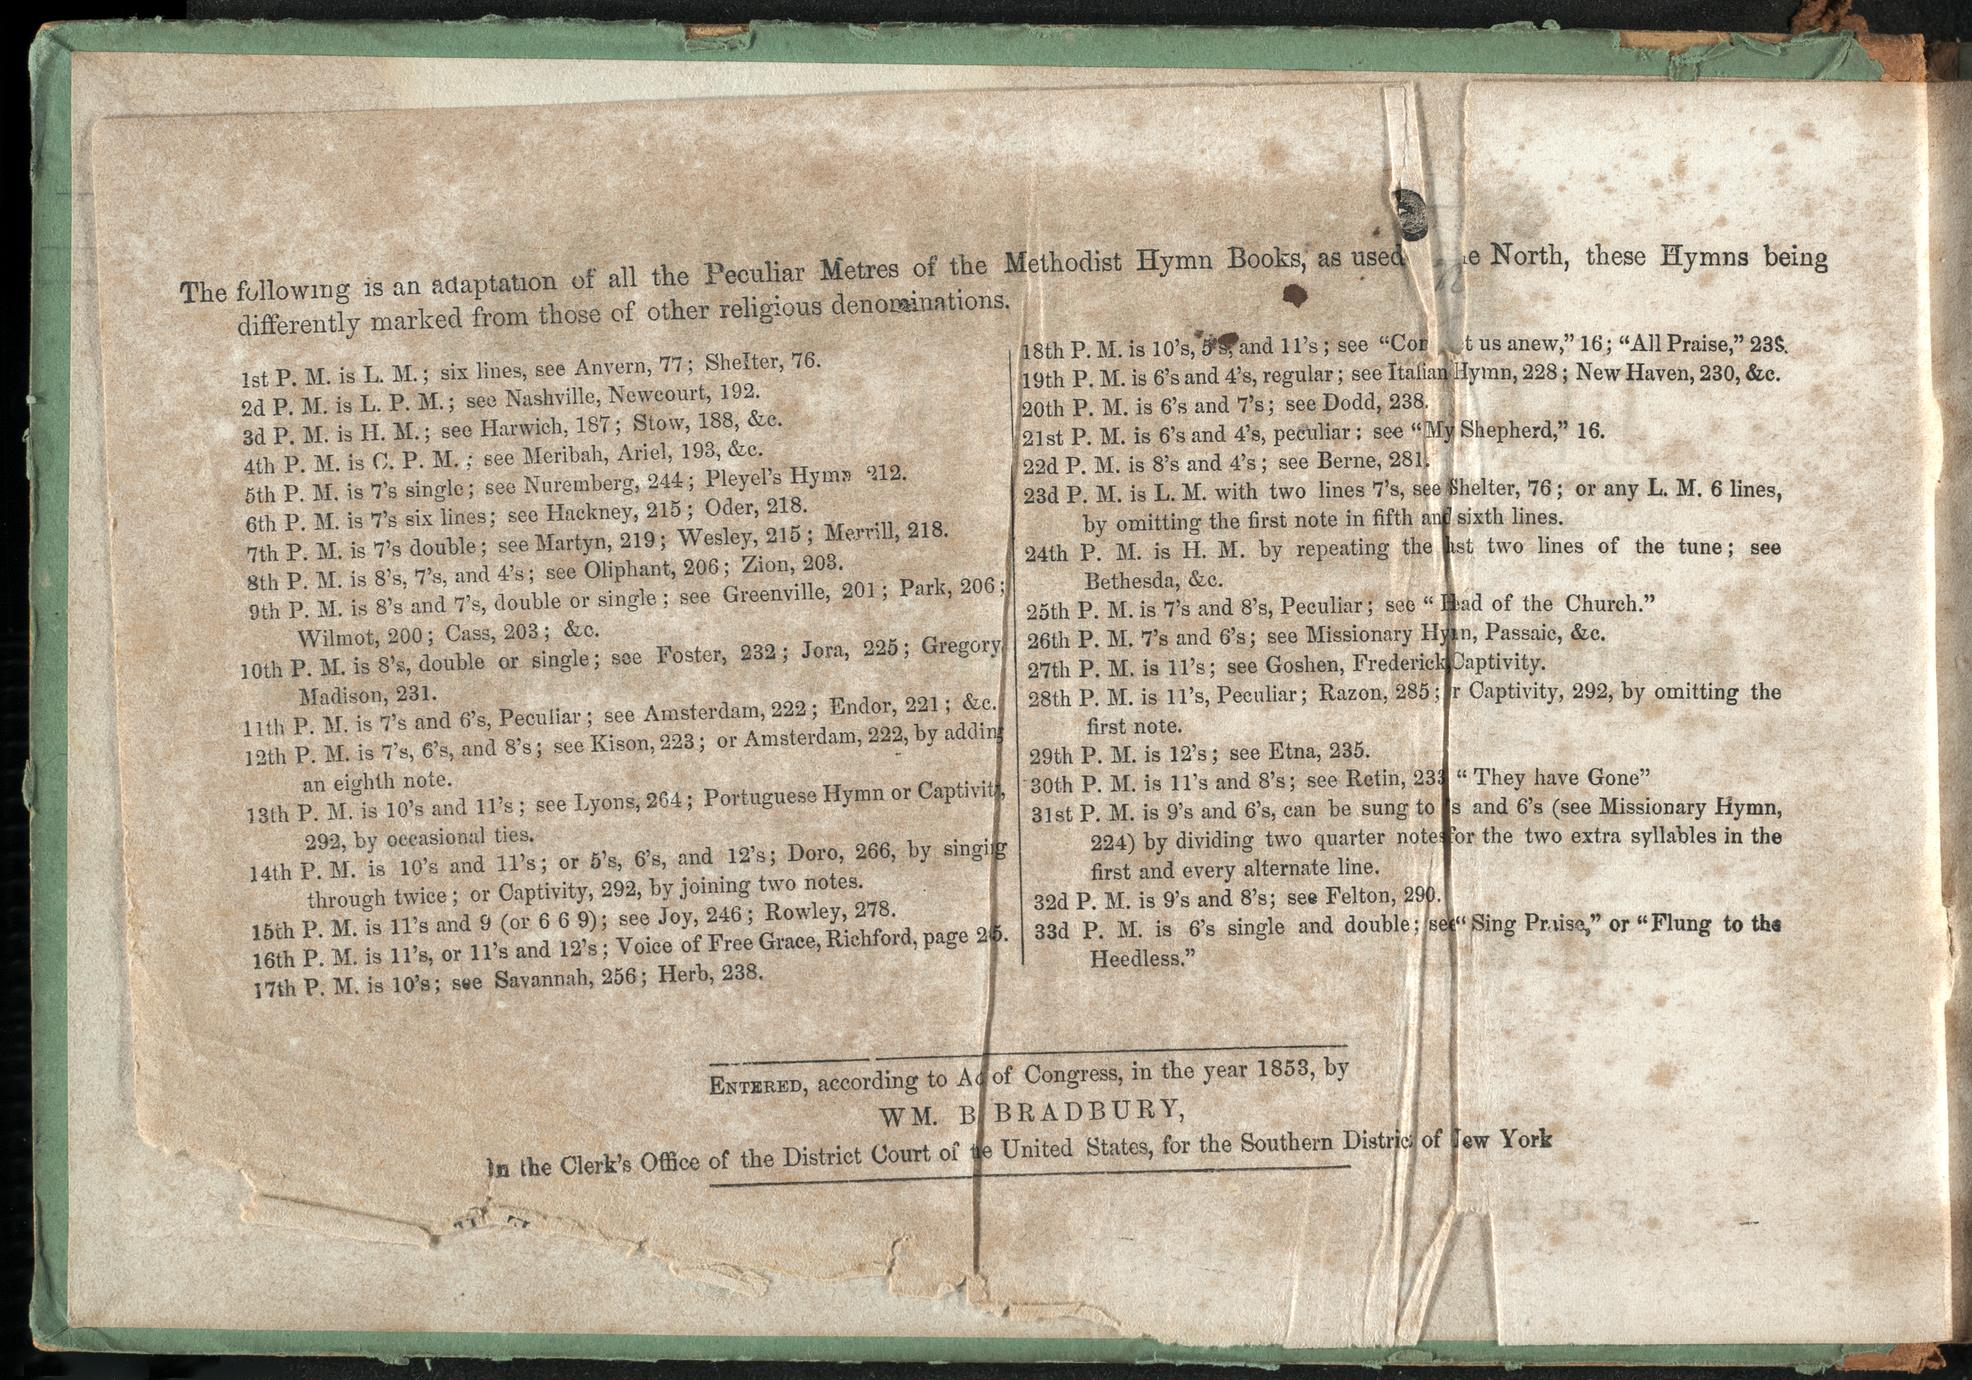 The following is an adaptation of all the Peculiar Metres of the Methodist Hymn Books, as used North, these Hymns being
differently marked from those of other religious denominations.
1st P. M. is L. M.; six lines, see Anvern, 77; Shelter, 76.
2d P. M. is L. P. M.; see Nashville, Newcourt, 192.
3d P. M. is H. M.; see Harwich, 187; Stow, 188, &c.
4th P. M. is C. P. M.; see Meribah, Ariel, 193, &c.
5th P. M. is 7's single; see Nuremberg, 244; Pleyel's Hymn 212.
6th P. M. is 7's six lines; see Hackney, 215; Oder, 218.
7th P. M. is 7's double; see Martyn, 219; Wesley, 215; Merrill, 218.
8th P. M. is 8's, 7's, and 4's; see Oliphant, 206; Zion, 203.
9th P. M. is 8's and 7's, double or single; see Greenville, 201; Park, 206;
Wilmot, 200; Cass, 203; &c.
10th P. M. is 8's, double or single; see Foster, 232; Jora, 225; Gregory
Madison, 231.
11th P. M. is 7's and 6's, Peculiar; see Amsterdam, 222; Endor, 221; &c.
12th P. M. is 7's, 6's, and 8's; see Kison, 223; or Amsterdam, 222, by adding
an eighth note.
13th P. M. is 10's and 11's; see Lyons, 264; Portuguese Hymn or Captivity,
292, by occasional ties.
14th P. M. is 10's and 11's; or 5's, 6's, and 12's; Doro, 266, by singing
through twice; or Captivity, 292, by joining two notes.
15th P. M. is 11's and 9 (or 6 6 9); see Joy, 246; Rowley, 278.
16th P. M. is 11's, or 11's and 12's; Voice of Free Grace, Richford, page
17th P. M. is 10's; see Savannah, 256; Herb, 238.
18th P. M. is 10's, 5's, and 11's; see "Co us anew," 16; "All Praise," 238.
19th P. M. is 6's and 4's, regular; see Italian Hymn, 228; New Haven, 230, &c.
20th P. M. is 6's and 7's; see Dodd, 238.
21st P. M. is 6's and 4's, peculiar; see "My Shepherd," 16.
22d P. M. is 8's and 4's; see Berne, 281.
23d P. M. is L. M. with two lines 7's, see Shelter, 76; or any L. M. 6 lines,
by omitting the first note in fifth and sixth lines.
24th P. M. is H. M. by repeating the last two lines of the tune; see
Bethesda, &c.
25th P. M. is 7's and 8's, Peculiar; see "Head of the Church."
26th P. M. 7's and 6's; see Missionary Hymn, Passaic, &c.
27th P. M. is 11's; see Goshen, Frederick Captivity.
28th P. M. is 11's, Peculiar; Razon, 285; or Captivity, 292, by omitting the
first note.
29th P. M. is 12's; see Etna, 235.
30th P. M. is 11's and 8's; see Retin, 233 "They have Gone"
31st P. M. is 9's and 6's, can be sung to and 6's (see Missionary Hymn,
224) by dividing two quarter notes for the two extra syllables in the
first and every alternate line.
32d P. M. is 9's and 8's; see Felton, 290.
33d P. M. is 6's single and double; see "Sing Praise," or "Flung to the
Heedless."
ENTERED, according to Act of Congress, in the year 1853, by
WM. B. BRADBURY,
In the Clerk's Office of the District Court of the United States, for the Southern District of New York